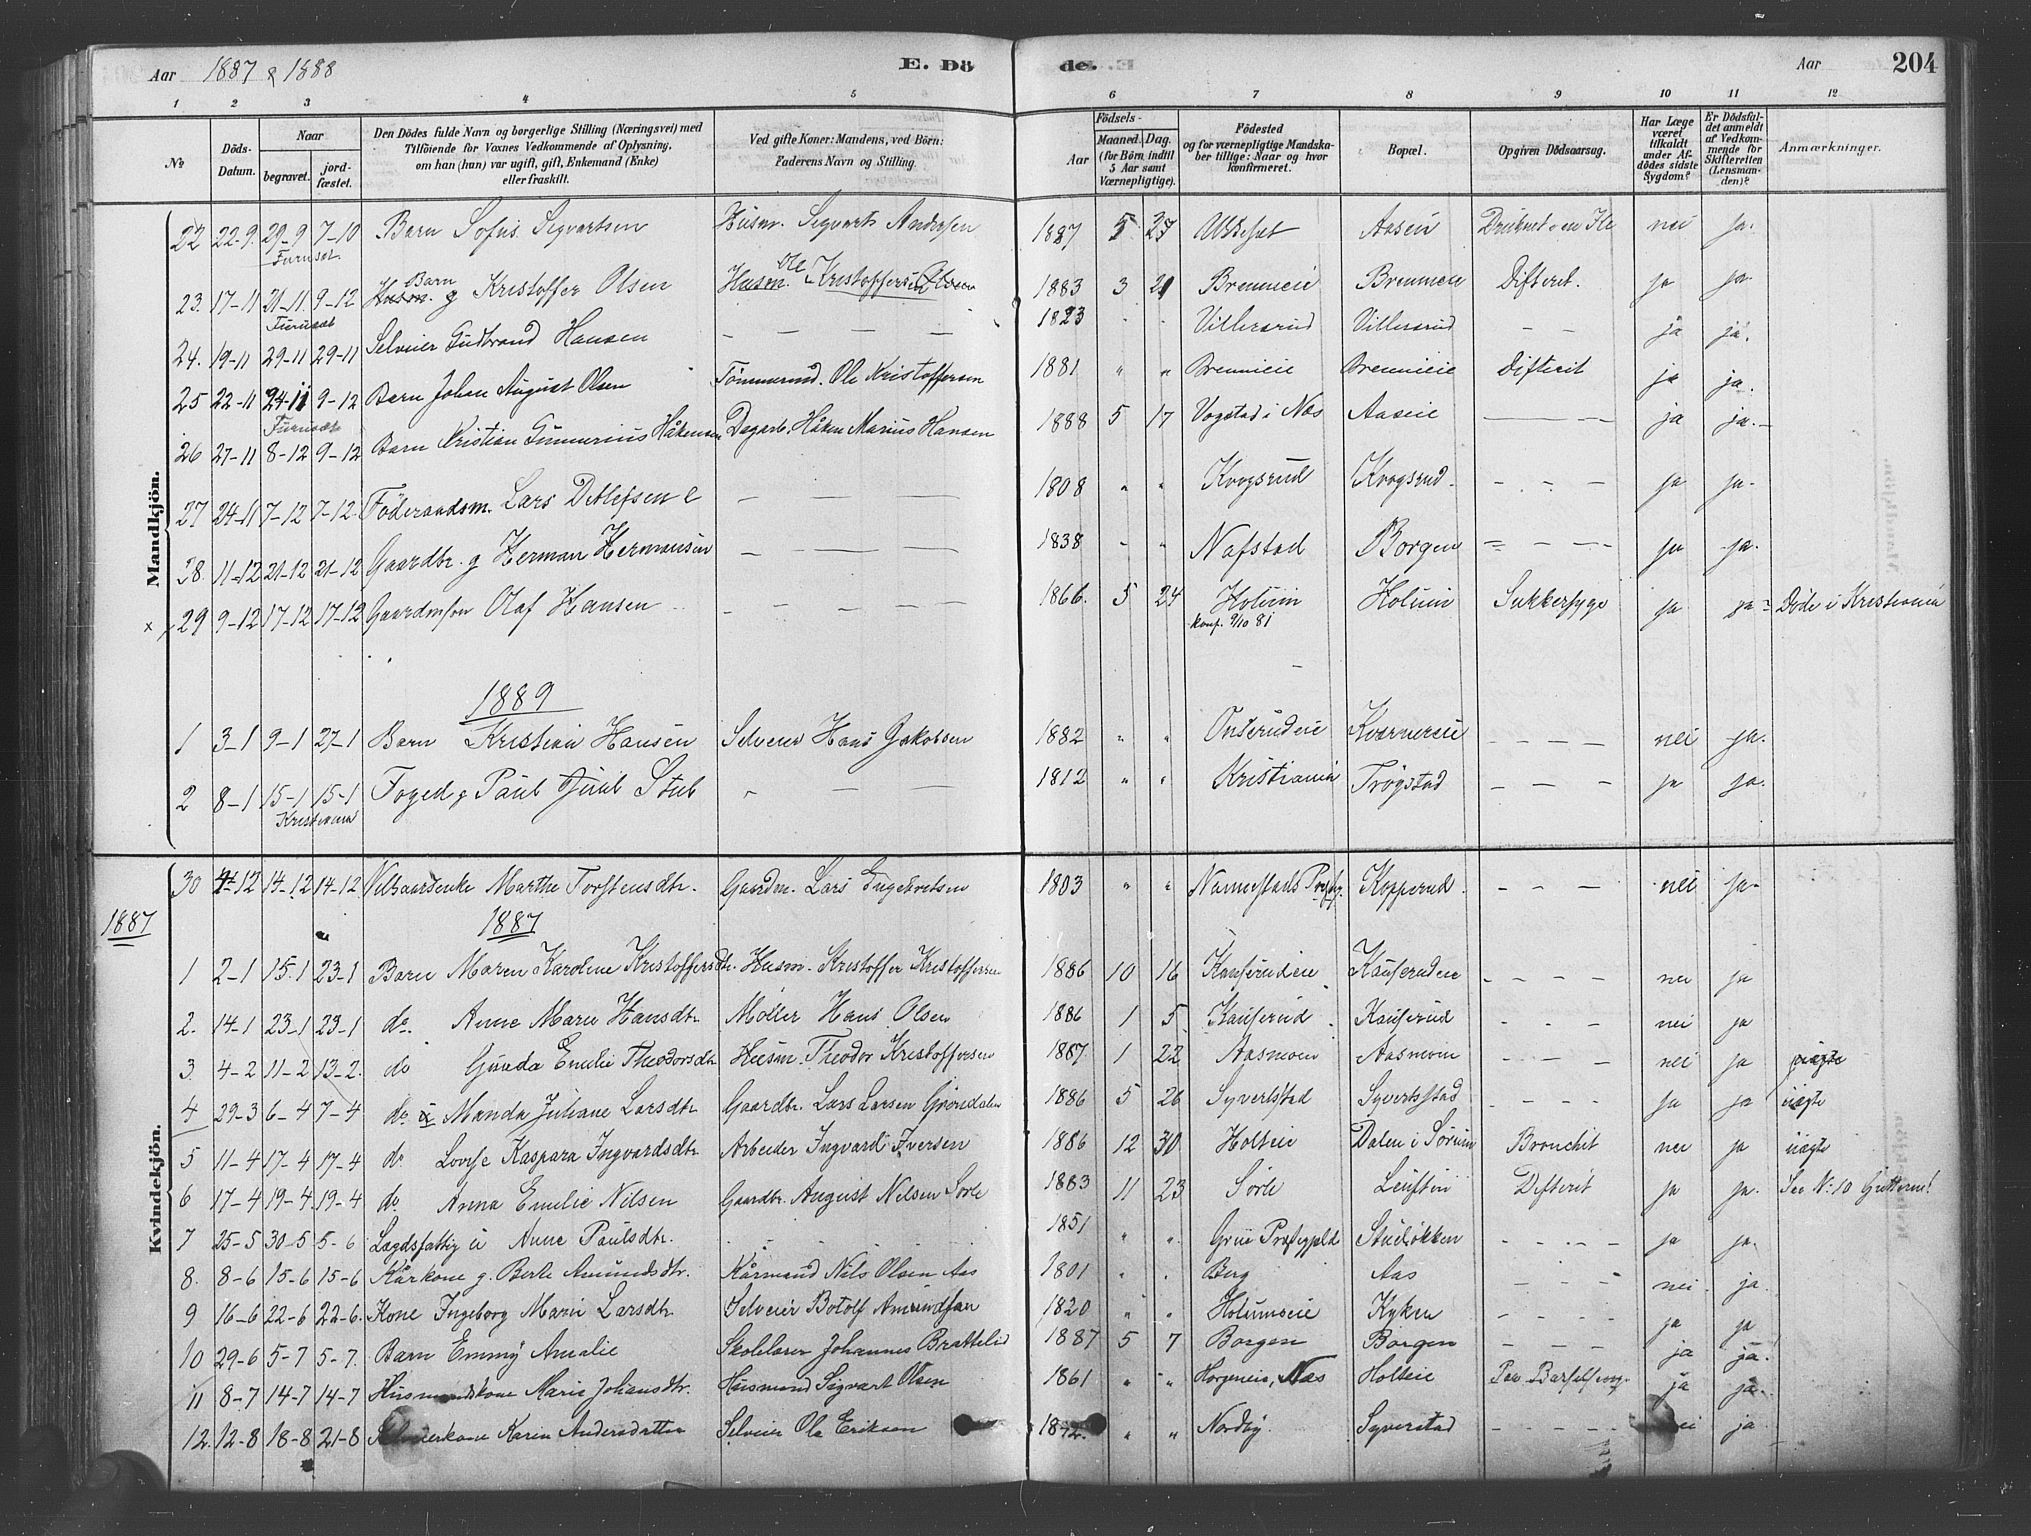 Aar 1887 & 1888 E. Dö de. Aar 204
1 2 3 4 5 6 7 8 9 10 11 12
No
Döds-Datum.
Naar
begravet.
jord-fæstet.
Den Dödes fulde Navn og borgerlige Stilling (Næringsvei) med
Tilföiende for Voxnes Vedkommende af Oplysning,
om han (hun) var ugift, gift, Enkemand (Enke)
eller fraskilt.
Ved gifte Koner: Mandens, ved Börn:
Faderens Navn og Stilling.
Aar
Födsels-
Maaned. Dag.
(for Börn indtil
5 Aar samt
Værnepligtige).
Födested
og for værnepligtige Mandska-
ber tillige: Naar og hvor
konfirmeret.
Bopæl.
Opgiven Dödsaarsag.
Har Læge
været
tilkaldt
under Af-
dödes sidste
Sygdom?
Er Dödsfal-
det anmeldt
af Vedkom-
mende for
Skifteretten
(Lensman-
den)?
Anmærkninger.
Mandkjön.
22 22-9 29-9 7-10 Barn Sofus Sigvartsen Husm. Sigvart Andersen 1887 5 27 Aasen nei ja.
Furuset
23. 17-11 21-11 9-12 Barn Kristoffer Olsen Husm. Ole Kristoffersen 1883 3 21 Brennieie Brennieie Difterit. ja ja
Furuset
24. 19-11 29-11 29-11 Selveier Gudbrand Hansen — — — — 1823 Villersrud Villersrud — — ja ja.
25 22-11 24-11 9-12 Barn Johan August Olsen Tömmermd. Ole Kristoffersen 1881 " " Brennieie Brennieie Difterit ja ja.
Furuset
26 27-11 8-12 9-12 Barn Kristian Gunnerius Håkensen Dagarb. Håken Marius Hansen 1888 5 17 Vogstad i Næs Aaseie — ja ja.
27 24-11 7-12 7-12. Föderaadsm. Lars Detlefsen e — — — — 1808 " " Krogsrud Krogsrud. — — — ja ja.
28. 11-12 21-12 21-12 Gaardbr. g Herman Hermansen — — — — 1838 " " Nafstad Borgen — — — ja ja.
x 29 9-12 17-12 17-12 Gaardmsön Olaf Hansen — — — — 1866. 5 24 Holum Holum Sukkersyge ja ja Döde i Kristiania
konf. 9/10 81
1889
1 3-1 9-1 27-1 Barn Kristian Hansen Selveier Hans Jakobsen 1882 " " Kværnereie — — — nei ja.
2 8-1 15-1 15-1 Foged g Paul Juul Stub " — — 1812 " " Kristiania Trögstad — — — ja ja.
Kristiania
30 4-12 14-12 14-12. Marthe Torstensdtr. Gaardm. Lars Ingebretsen 1803 " " Nannestads Præstg. Kopperud. — — — nei ja
1887 1887
Kvindekjön.
1 2-1 15-1 23-1 Barn Maren Karoline Kristoffersdtr. Husm. Kristoffer Kristoffersen 1886 10 16 Kauserudeie Kauserudeie — — — nei ja
2. 14-1 23-1 23-1 do. Anne Marie Hansdtr. Möller Hans Olsen 1886 1 5 Kauserud Kauserud — — — nei ja
3. 4-2 11-2 13-2. do Gunda Emilie Theodorsdtr Husm. Theodor Kristoffersen 1887 1 22 Aasmoen Aasmoen — — — nei ja uægte
4 29-3 6-4 7-4 do Manda Juliane Larsdtr. Gaardbr. Lars Larsen Gröndalen 1886 5 26 Syvertstad Syvertstad — — — ja ja uægte
5 11-4 17-4 17-4 do Lovise Kaspara Ingvardsdtr. Arbeider Ingvard Iversen 1886 12 30 Holteie Dalen i Sörum Bronchit nei ja uægte
6 17-4 19-4 19-4 do. Anna Emilie Nilsen Gaardbr. August Nilsen Sörle 1883 11 23 Sörle Difterit ja ja. See No: 10 Gutterne!
7 25-5 30-5 5-6 Lægdsfattig u Anne Paulsdtr. — — — 1851 " " Grue Præstegjeld — — — ja ja.
8. 8-6 15-6 15-6 Kårkone g. Berte Amundsdtr. Kårmand Nils Olsen Aas 1801 " " Berg Aas — — — nei ja.
9 16-6 22-6 22-6. Kone Ingeborg Marie Larsdtr Selveier Botolf Amundsen 1820 " " Holumseie Kyken — — — ja ja
10 29-6 5-7 5-7. Barn Emmy Amalie Skolelærer Johannes Brattelid 1887 5 7 Borgen Borgen — — — ja ja.
11 8-7 14-7 14-7 Husmandskone Marie Johansdtr. Husmand Sigvart Olsen 1861 " " Horgeneie, Næs Holteie Paa Barselseng ja ja.
12. 12-8 18-8 21-8 Selveierkone Karen Andersdatter Selveier Ole Eriksen 1842. " " Nordby Syverstad — — — nei ja